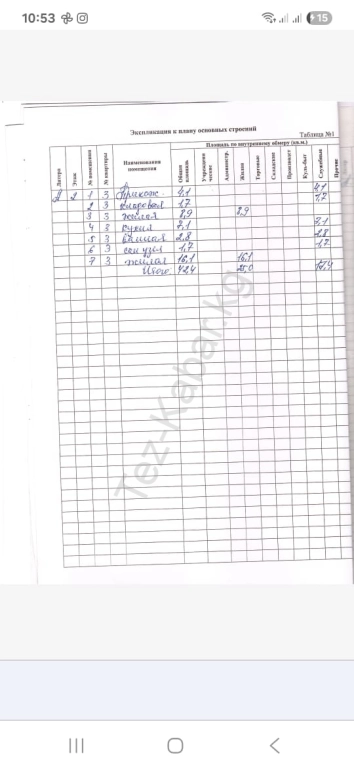 10:53
15
Экспликация к плану основных строений
Таблица №1
Литера Этаж № помещения № квартиры Наименования помещения Площадь по внутреннему обмеру (кв.м.)
Общая площадь Администр. Жилая Торговые Складские Производст Культ-быт Служебная Прочие
А 2 1 3 Прихож. 4,1 4,1
2 3 кладовая 1,7 1,7
3 3 жилая 8,9 8,9
4 3 кухня 7,1 7,1
5 3 ванная 2,8 2,8
6 3 сан узел 1,7 1,7
7 3 жилая 16,1 16,1
Итого 42,4 25,0 17,4
Tez-Kabar.kg